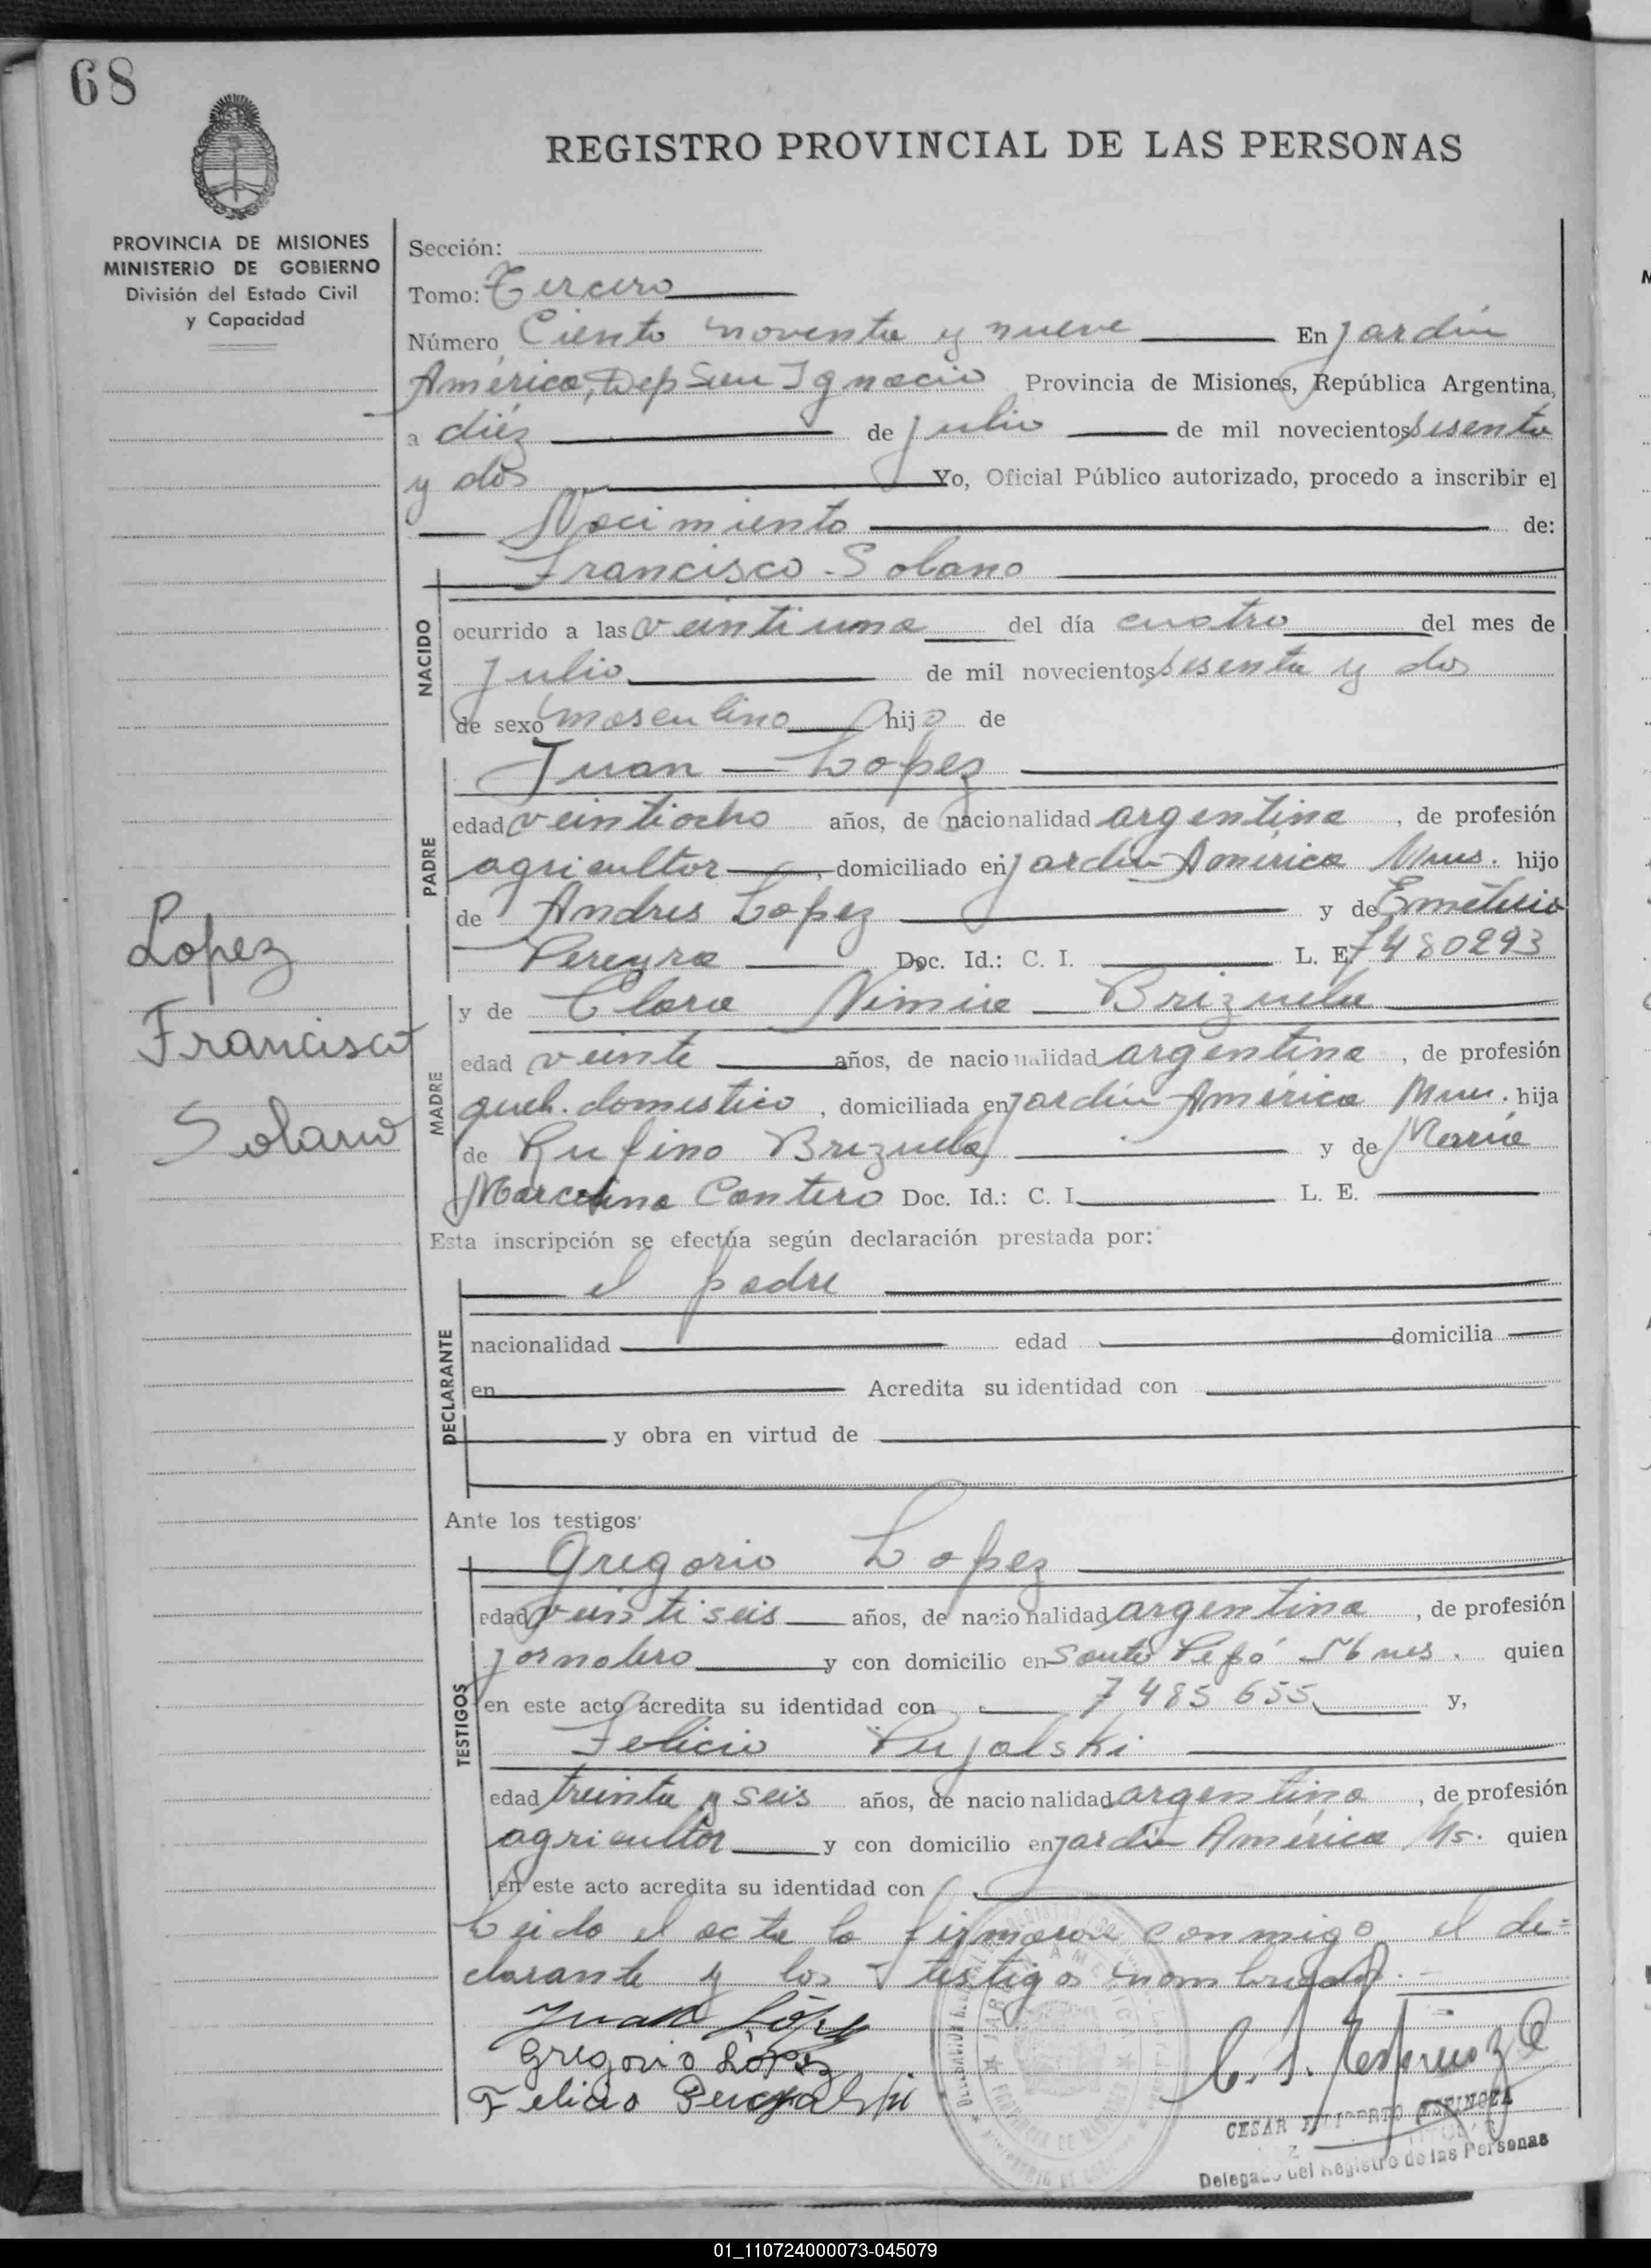 68
REGISTRO PROVINCIAL DE LAS PERSONAS
PROVINCIA DE MISIONES
MINISTERIO DE GOBIERNO
División del Estado Civil
y Capacidad
Sección:
Tomo: Tercero
Número Ciento noventa y nueve En Jardín
América, Dep San Ignacio Provincia de Misiones, República Argentina,
a diéz de Julio de mil novecientos sesenta
y dos Yo, Oficial Público autorizado, procedo a inscribir el
Nacimiento de:
Francisco Solano
NACIDO
ocurrido a las veintiuna del día cuatro del mes de
Julio de mil novecientos sesenta y dos
de sexo masculino hijo de
Juan Lopez
PADRE
edad veintiocho años, de nacionalidad argentina, de profesión
agricultor, domiciliado en Jardín América hijo
de Andres Lopez y de
Pereyra Doc. Id.: C. I. L. E. 7480293
y de Clara Brizuela
MADRE
edad veinte años, de nacionalidad argentina, de profesión
queh. domestico, domiciliada en Jardín América hija
de Rufino Brizuela y de María
Marcelina Cantero Doc. Id.: C. I. L. E.
Lopez
Francisco
Solano
Esta inscripción se efectúa según declaración prestada por:
el padre
DECLARANTE
nacionalidad edad domicilia
en Acredita su identidad con
y obra en virtud de
Ante los testigos:
Gregorio Lopez
TESTIGOS
edad veintiseis años, de nacionalidad argentina, de profesión
jornalero y con domicilio en quien
en este acto acredita su identidad con 7485655 y,
Felicio Pujalski
edad treinta y seis años, de nacionalidad argentina, de profesión
agricultor y con domicilio en Jardín América Ms. quien
en este acto acredita su identidad con
Leido el acta la firmaron conmigo el de=
clarante y los testigos nombrados.
Juan López
Gregorio López
Felicio
CESAR ESPINOZA
Delegado del Registro de las Personas
01_110724000073-045079